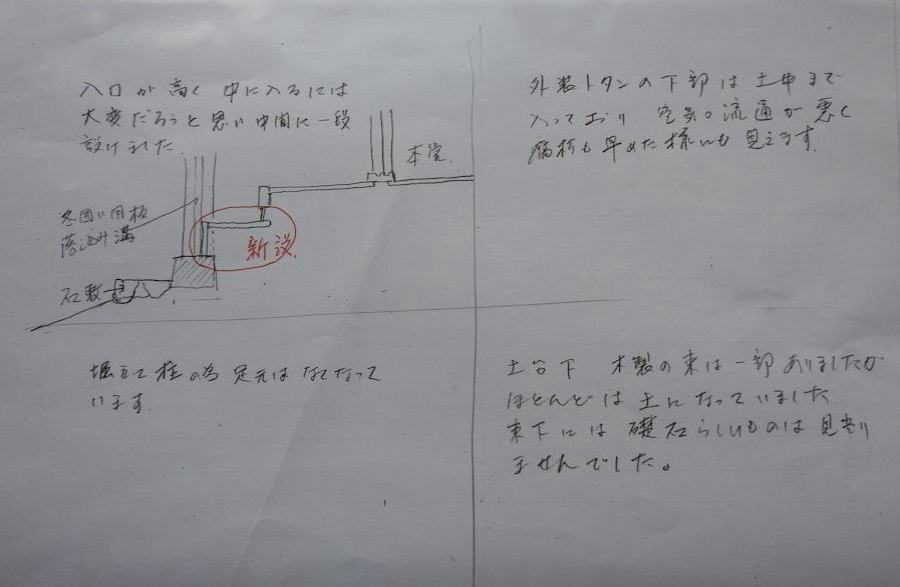 入口が高く 中に入るには
大変だろうと思い中間に一段
設けました
本堂
冬囲い用板
落込み溝
新設
石敷
外装トタンの下部は土中まで
入っており 空気の流通が悪く
腐朽も早めた様にも見えます
堀立て柱の為足元はなくなって
います
土台下 木製の束は一部ありましたが
ほとんどは土になっていました
束下には礎石らしいものは見当り
ませんでした。